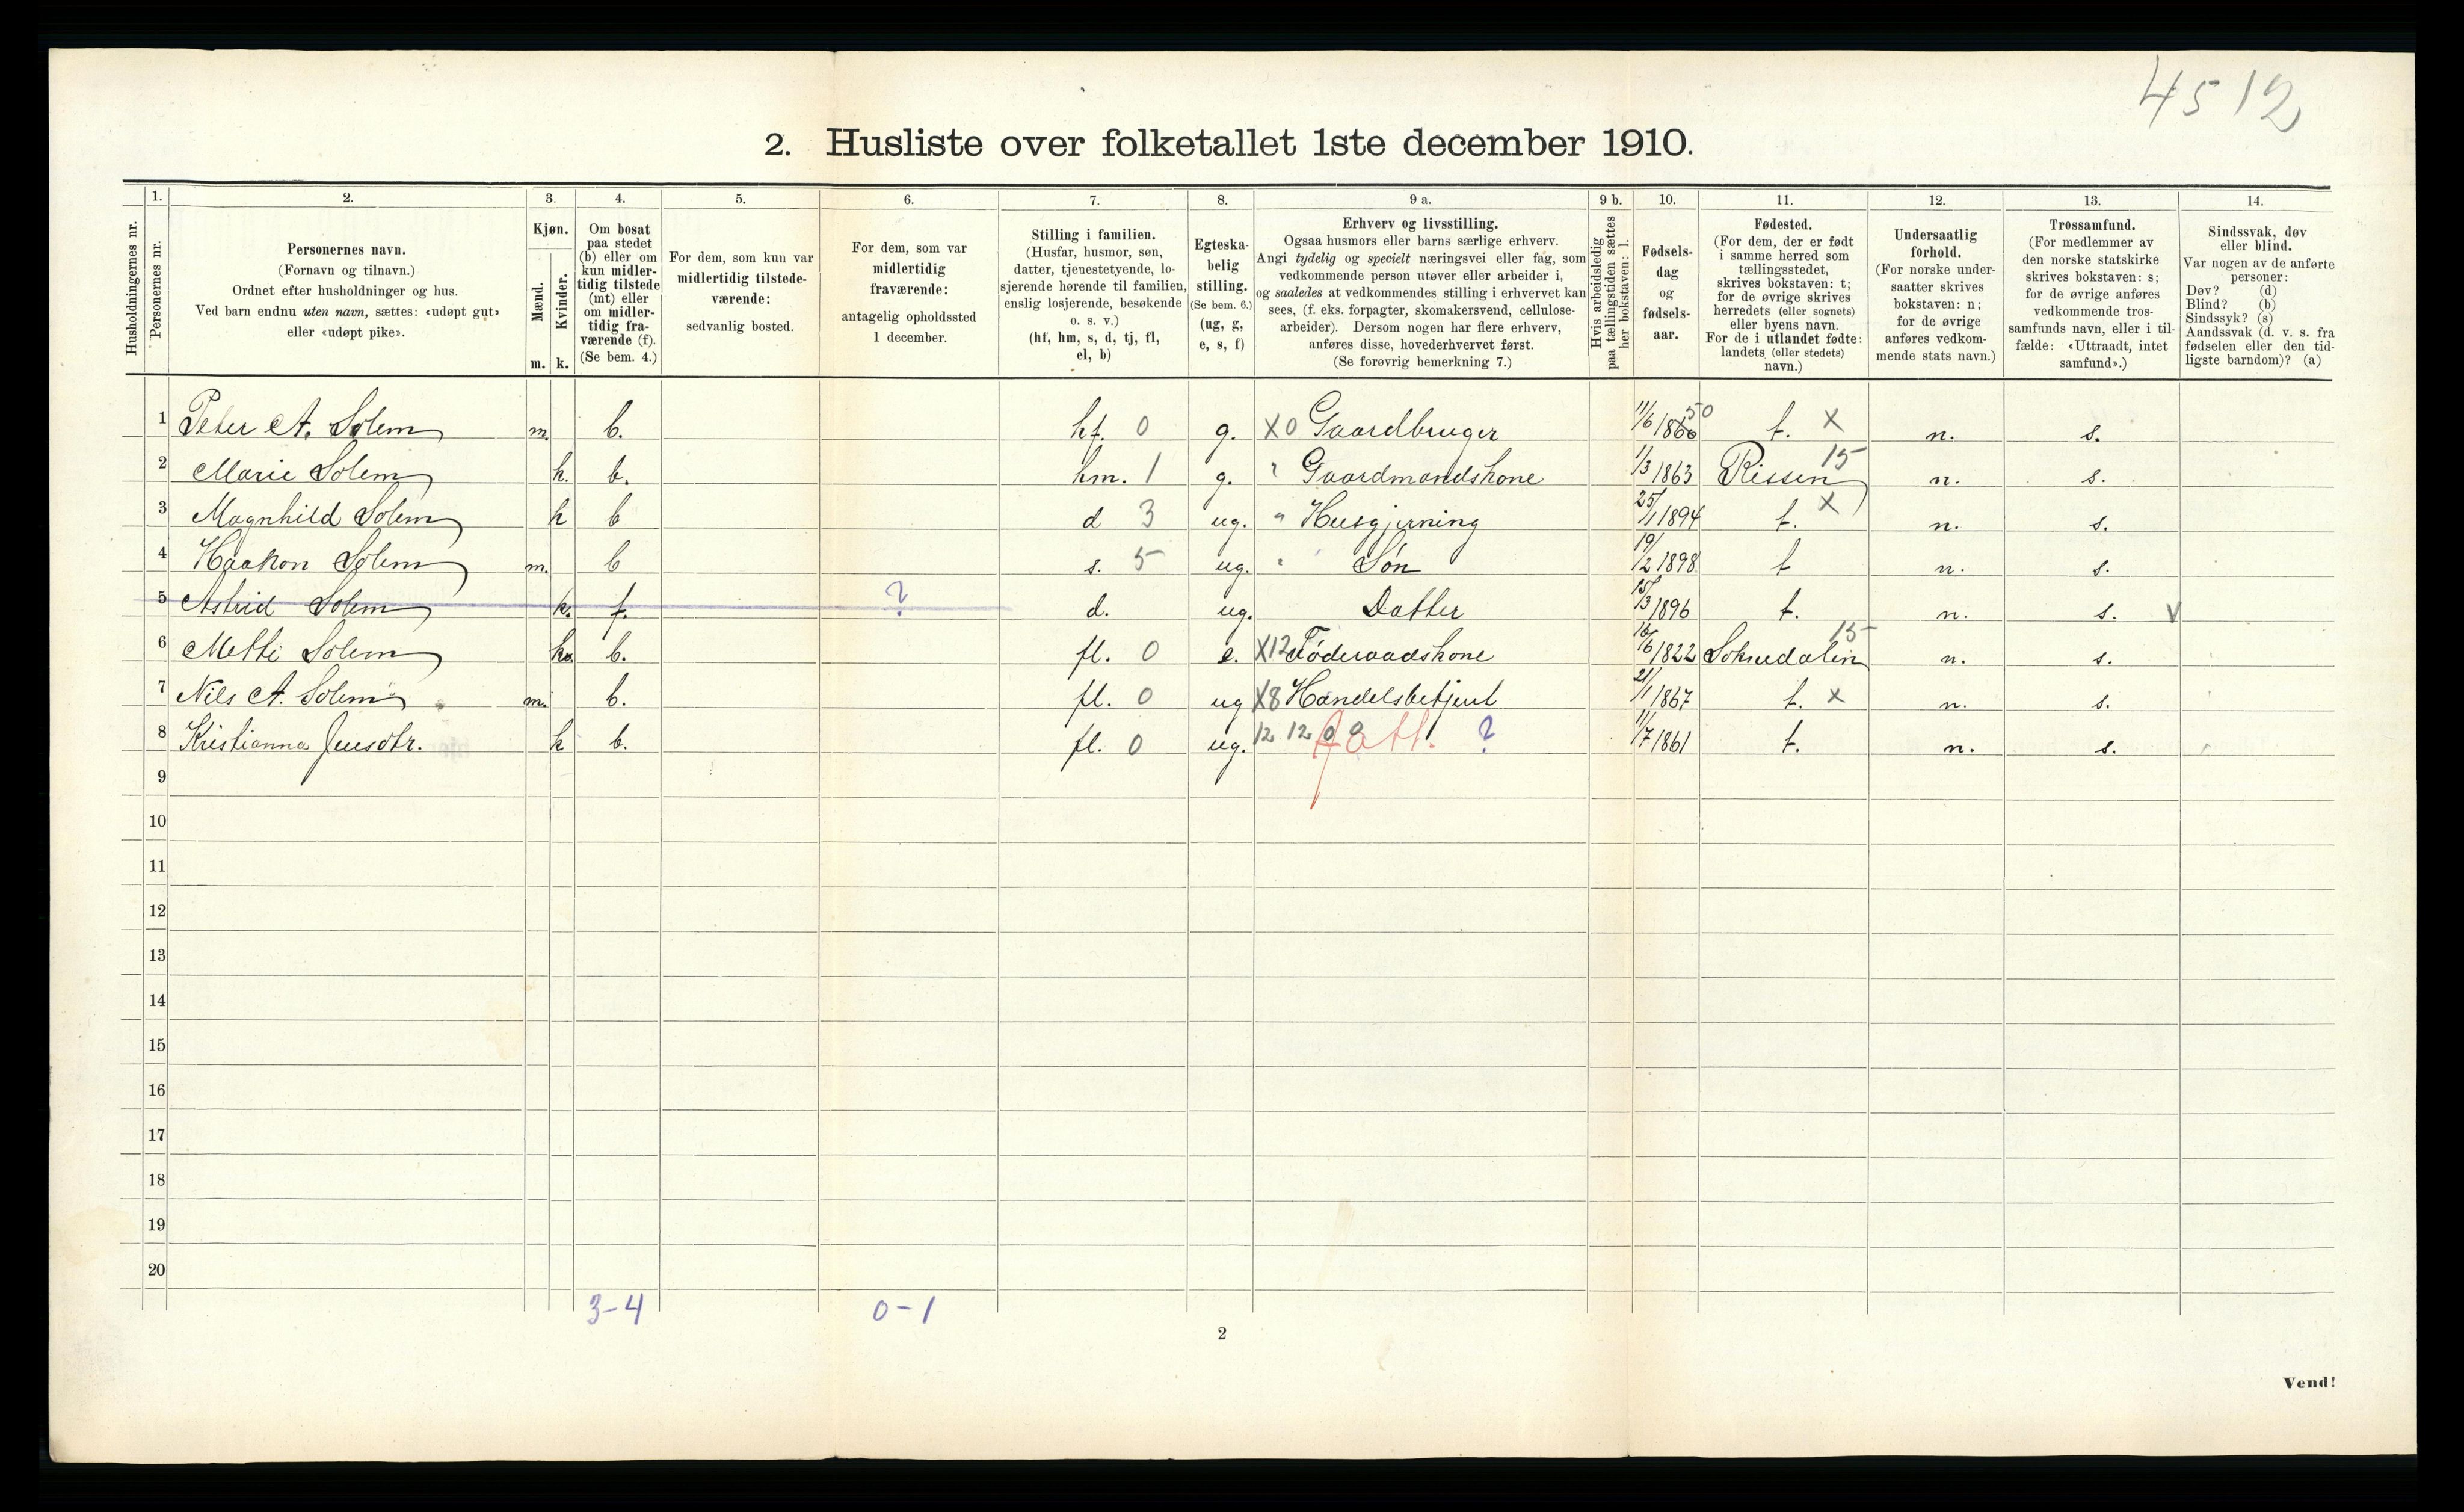 4512
2. Husliste over folketallet 1ste december 1910.
Husholdningernes nr.
1.
Personernes nr.
2.
Personernes navn.
(Fornavn og tilnavn.)
Ordnet efter husholdninger og hus.
Ved barn endnu uten navn, sættes: «udøpt gut»
eller «udøpt pike».
3.
Kjøn.
Mænd.
Kvinder.
m. k.
4.
Om bosat
paa stedet
(b) eller om
kun midler-
tidig tilstede
(mt) eller
om midler-
tidig fra-
værende (f).
(Se bem. 4.)
5.
For dem, som kun var
midlertidig tilstede-
værende:
sedvanlig bosted.
6.
For dem, som var
midlertidig
fraværende:
antagelig opholdssted
1 december.
7.
Stilling i familien.
(Husfar, husmor, søn,
datter, tjenestetyende, lo-
sjerende hørende til familien,
enslig losjerende, besøkende
o. s. v.)
(hf, hm, s, d, tj, fl,
el, b)
8.
Egteska-
belig
stilling.
(Se bem. 6.)
(ug, g,
e, s, f)
9 a.
Erhverv og livsstilling.
Ogsaa husmors eller barns særlige erhverv.
Angi tydelig og specielt næringsvei eller fag, som
vedkommende person utøver eller arbeider i,
og saaledes at vedkommendes stilling i erhvervet kan
sees, (f. eks. forpagter, skomakersvend, cellulose-
arbeider). Dersom nogen har flere erhverv,
anføres disse, hovederhvervet først.
(Se forøvrig bemerkning 7.)
9 b.
Hvis arbeidsledig
paa tællingstiden sættes
her bokstaven: l.
10.
Fødsels-
dag
og
fødsels-
aar.
11.
Fødested.
(For dem, der er født
i samme herred som
tællingsstedet,
skrives bokstaven: t;
for de øvrige skrives
herredets (eller sognets)
eller byens navn.
For de i utlandet fødte:
landets (eller stedets)
navn.)
12.
Undersaatlig
forhold.
(For norske under-
saatter skrives
bokstaven: n;
for de øvrige
anføres vedkom-
mende stats navn.)
13.
Trossamfund.
(For medlemmer av
den norske statskirke
skrives bokstaven: s;
for de øvrige anføres
vedkommende tros-
samfunds navn, eller i til-
fælde: «Uttraadt, intet
samfund».)
14.
Sindssvak, døv
eller blind.
Var nogen av de anførte
personer:
Døv? (d)
Blind? (b)
Sindssyk? (s)
Aandssvak (d. v. s. fra
fødselen eller den tid-
ligste barndom)? (a)
1 Peter A. Solem m. b. hf. 0 g. X0 Gaardbruger 11/6 1860 50 t. X n. s.
2 Marie Solem k. b. hm. 1 g. " Gaardmandskone 1/3 1863 Rissen 15 n. s.
3 Magnhild Solem k b d 3 ug. " Husgjerning 25/1 1894 t. X n. s.
4 Haakon Solem m. b s. 5 ug. " Søn 19/2 1898 t n. s.
5 Astrid Solem k. f. ? d. ug. Datter 15/3 1896 t. n. s. V
6 Metti Solem k. b. fl. 0 e. X12 Føderaadskone 16/6 1822 Soknedalen 15 n. s.
7 Nils A. Solem m. b. fl. 0 ug X8 Handelsbetjent 21/1 1867 t. x n. s.
8 Kristianna Jensdtr. k b. fl. 0 ug. 12 12 0 0 fatt. ? 11/7 1861 t. n. s.
9
10
11
12
13
14
15
16
17
18
19
20
3-4 0-1
2
Vend!